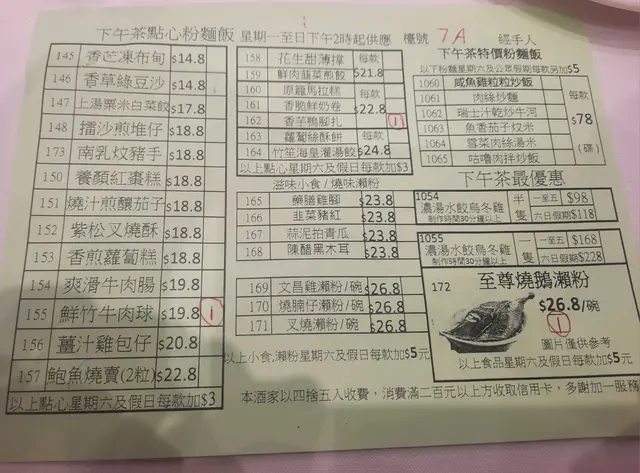 下午茶點心粉麵飯 星期一至日下午2時起供應 檯號 7A 經手人
145 香芒凍布甸 $14.8
146 香草綠豆沙 $14.8
147 上湯粟米白菜餃 $17.8
148 擂沙煎堆仔 $18.8
173 南乳炆豬手 $18.8
150 養顏紅棗糕 $18.8
151 燒汁煎釀茄子 $18.8
152 紫松叉燒酥 $18.8
153 香煎蘿蔔糕 $18.8
154 爽滑牛肉腸 $19.8
155 鮮竹牛肉球 $19.8 1
156 薑汁雞包仔 $20.8
157 鮑魚燒賣(2粒) $22.8
以上點心星期六及假日每款加$3
158 花生甜薄撐 每款
159 鮮肉韮菜煎餃 $21.8
160 原籠馬拉糕 每款
161 香脆鮮奶卷 $22.8
162 香芋鴨腳扎 1
163 蘿蔔絲酥餅 每款
164 竹笙海皇灌湯餃 $24.8
以上點心星期六及假日每款加$3
滋味小食/燒味瀨粉
165 藥膳雞腳 $23.8
166 韮菜豬紅 $23.8
167 蒜泥拍青瓜 $23.8
168 陳醋黑木耳 $23.8
169 文昌雞瀨粉/碗 $26.8
170 燒腩仔瀨粉/碗 $26.8
171 叉燒瀨粉/碗 $26.8
以上小食,瀨粉星期六及假日每款加$5元
下午茶特價粉麵飯
以下粉麵星期六及公眾假期每款另加$5
1060 咸魚雞粒粒炒飯 每款
1061 肉絲炒麵
1062 瑞士汁乾炒牛河 $78
1063 魚香茄子炆米
1064 雪菜肉絲湯米 (碟)
1065 咕嚕肉拌炒飯
下午茶最優惠
1054 半隻 一至五 $98
濃湯水餃烏冬雞 六日假 $118
制作時間30分鐘以上
1055 一隻 一至五 $168
濃湯水餃烏冬雞 六日假期 $228
制作時間30分鐘以上
172 至尊燒鵝瀨粉
$26.8/碗
1
圖片僅供參考
以上食品星期六及假日每款加$5元
本酒家以四捨五入收費，消費滿二百元以上方收取信用卡，多謝加一服務